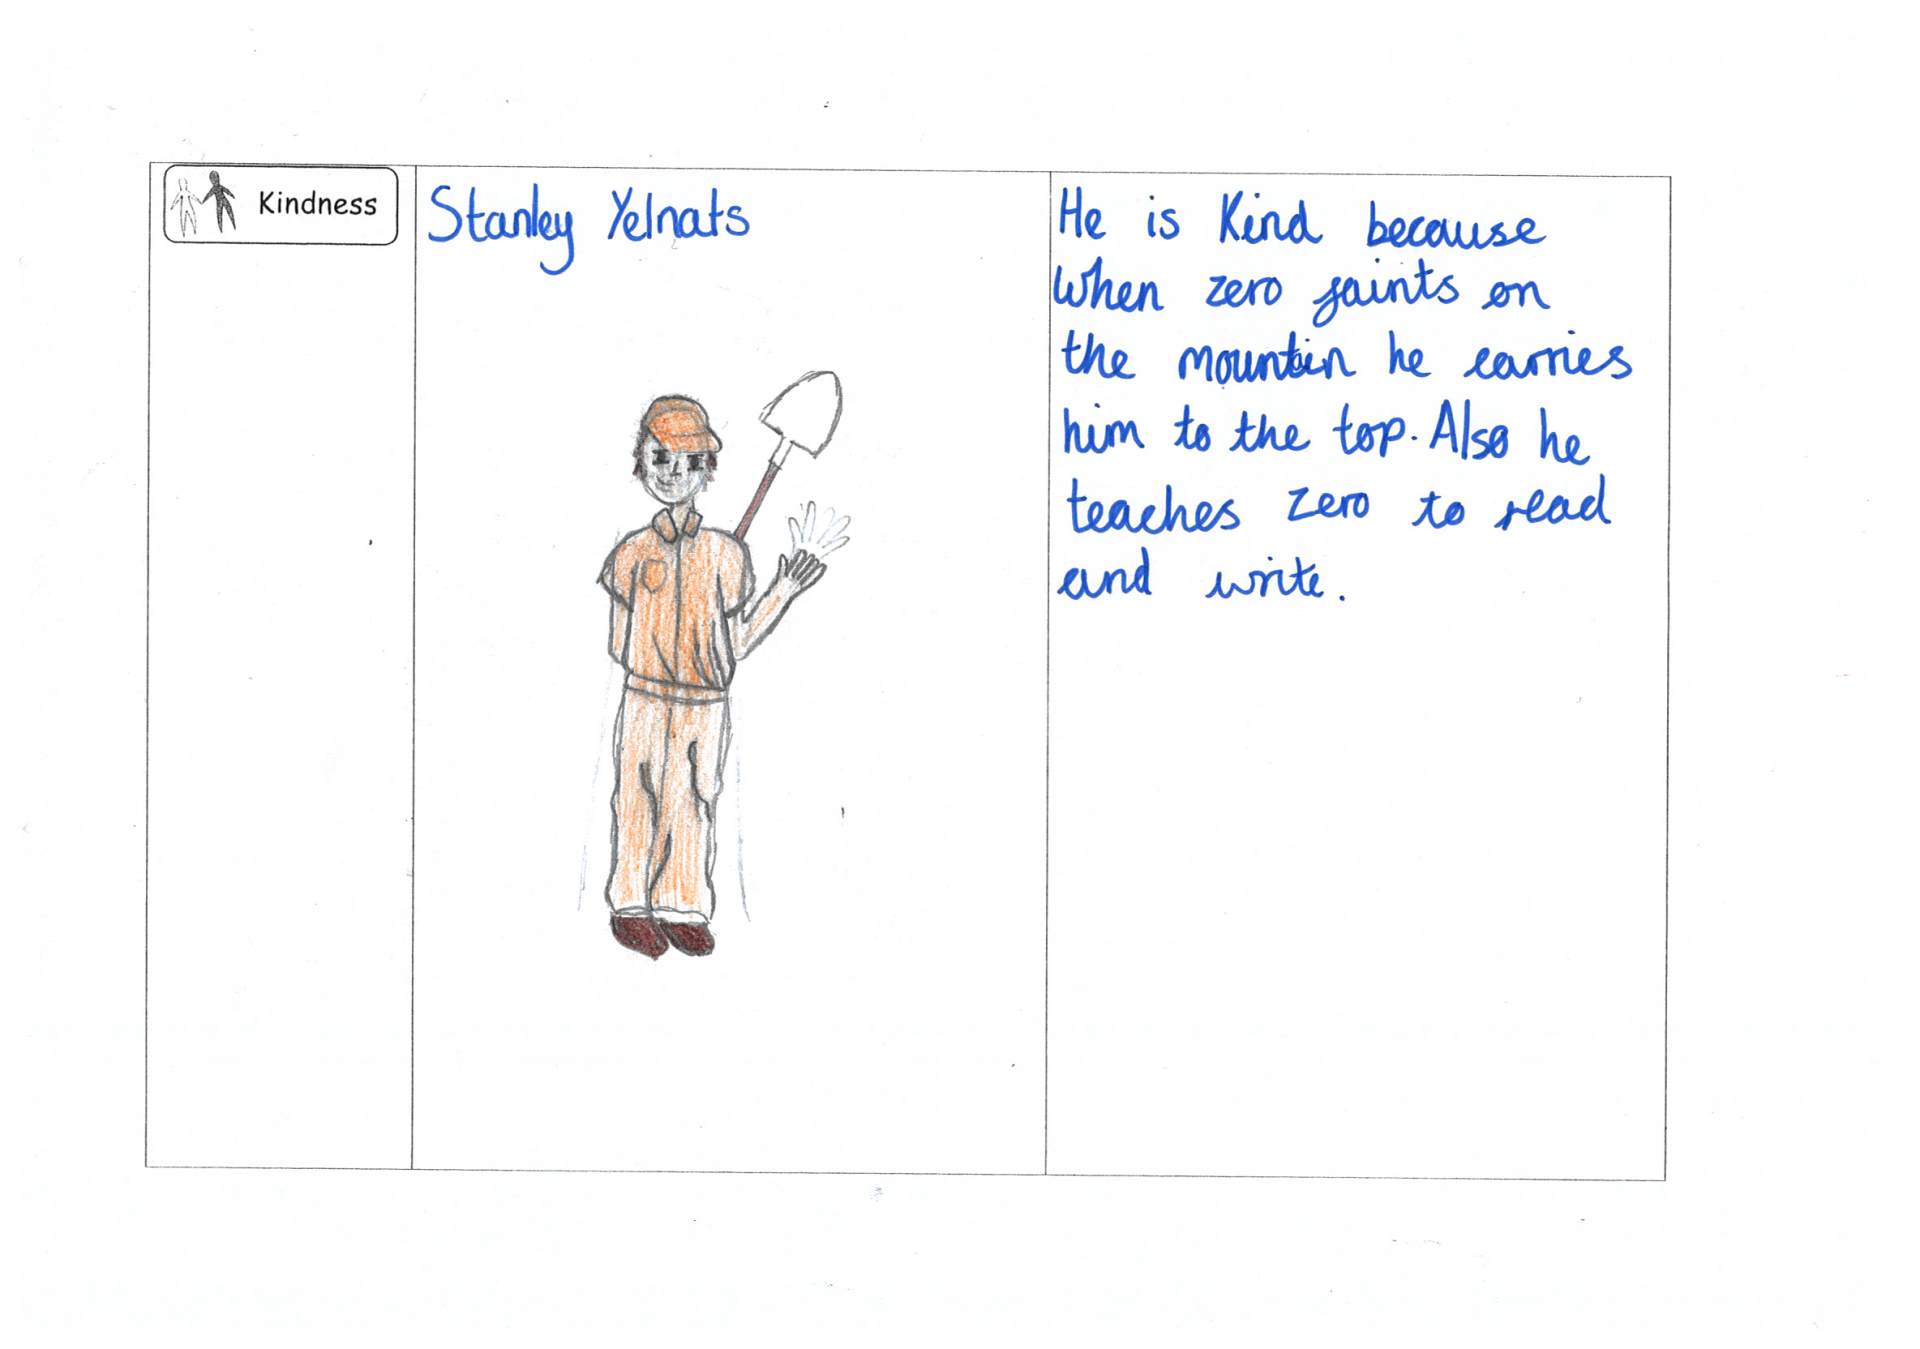 Kindness
Stanley Yelnats
He is Kind because
when zero faints on
the mountin he carries
him to the top. Also he
teaches zero to read
and write.